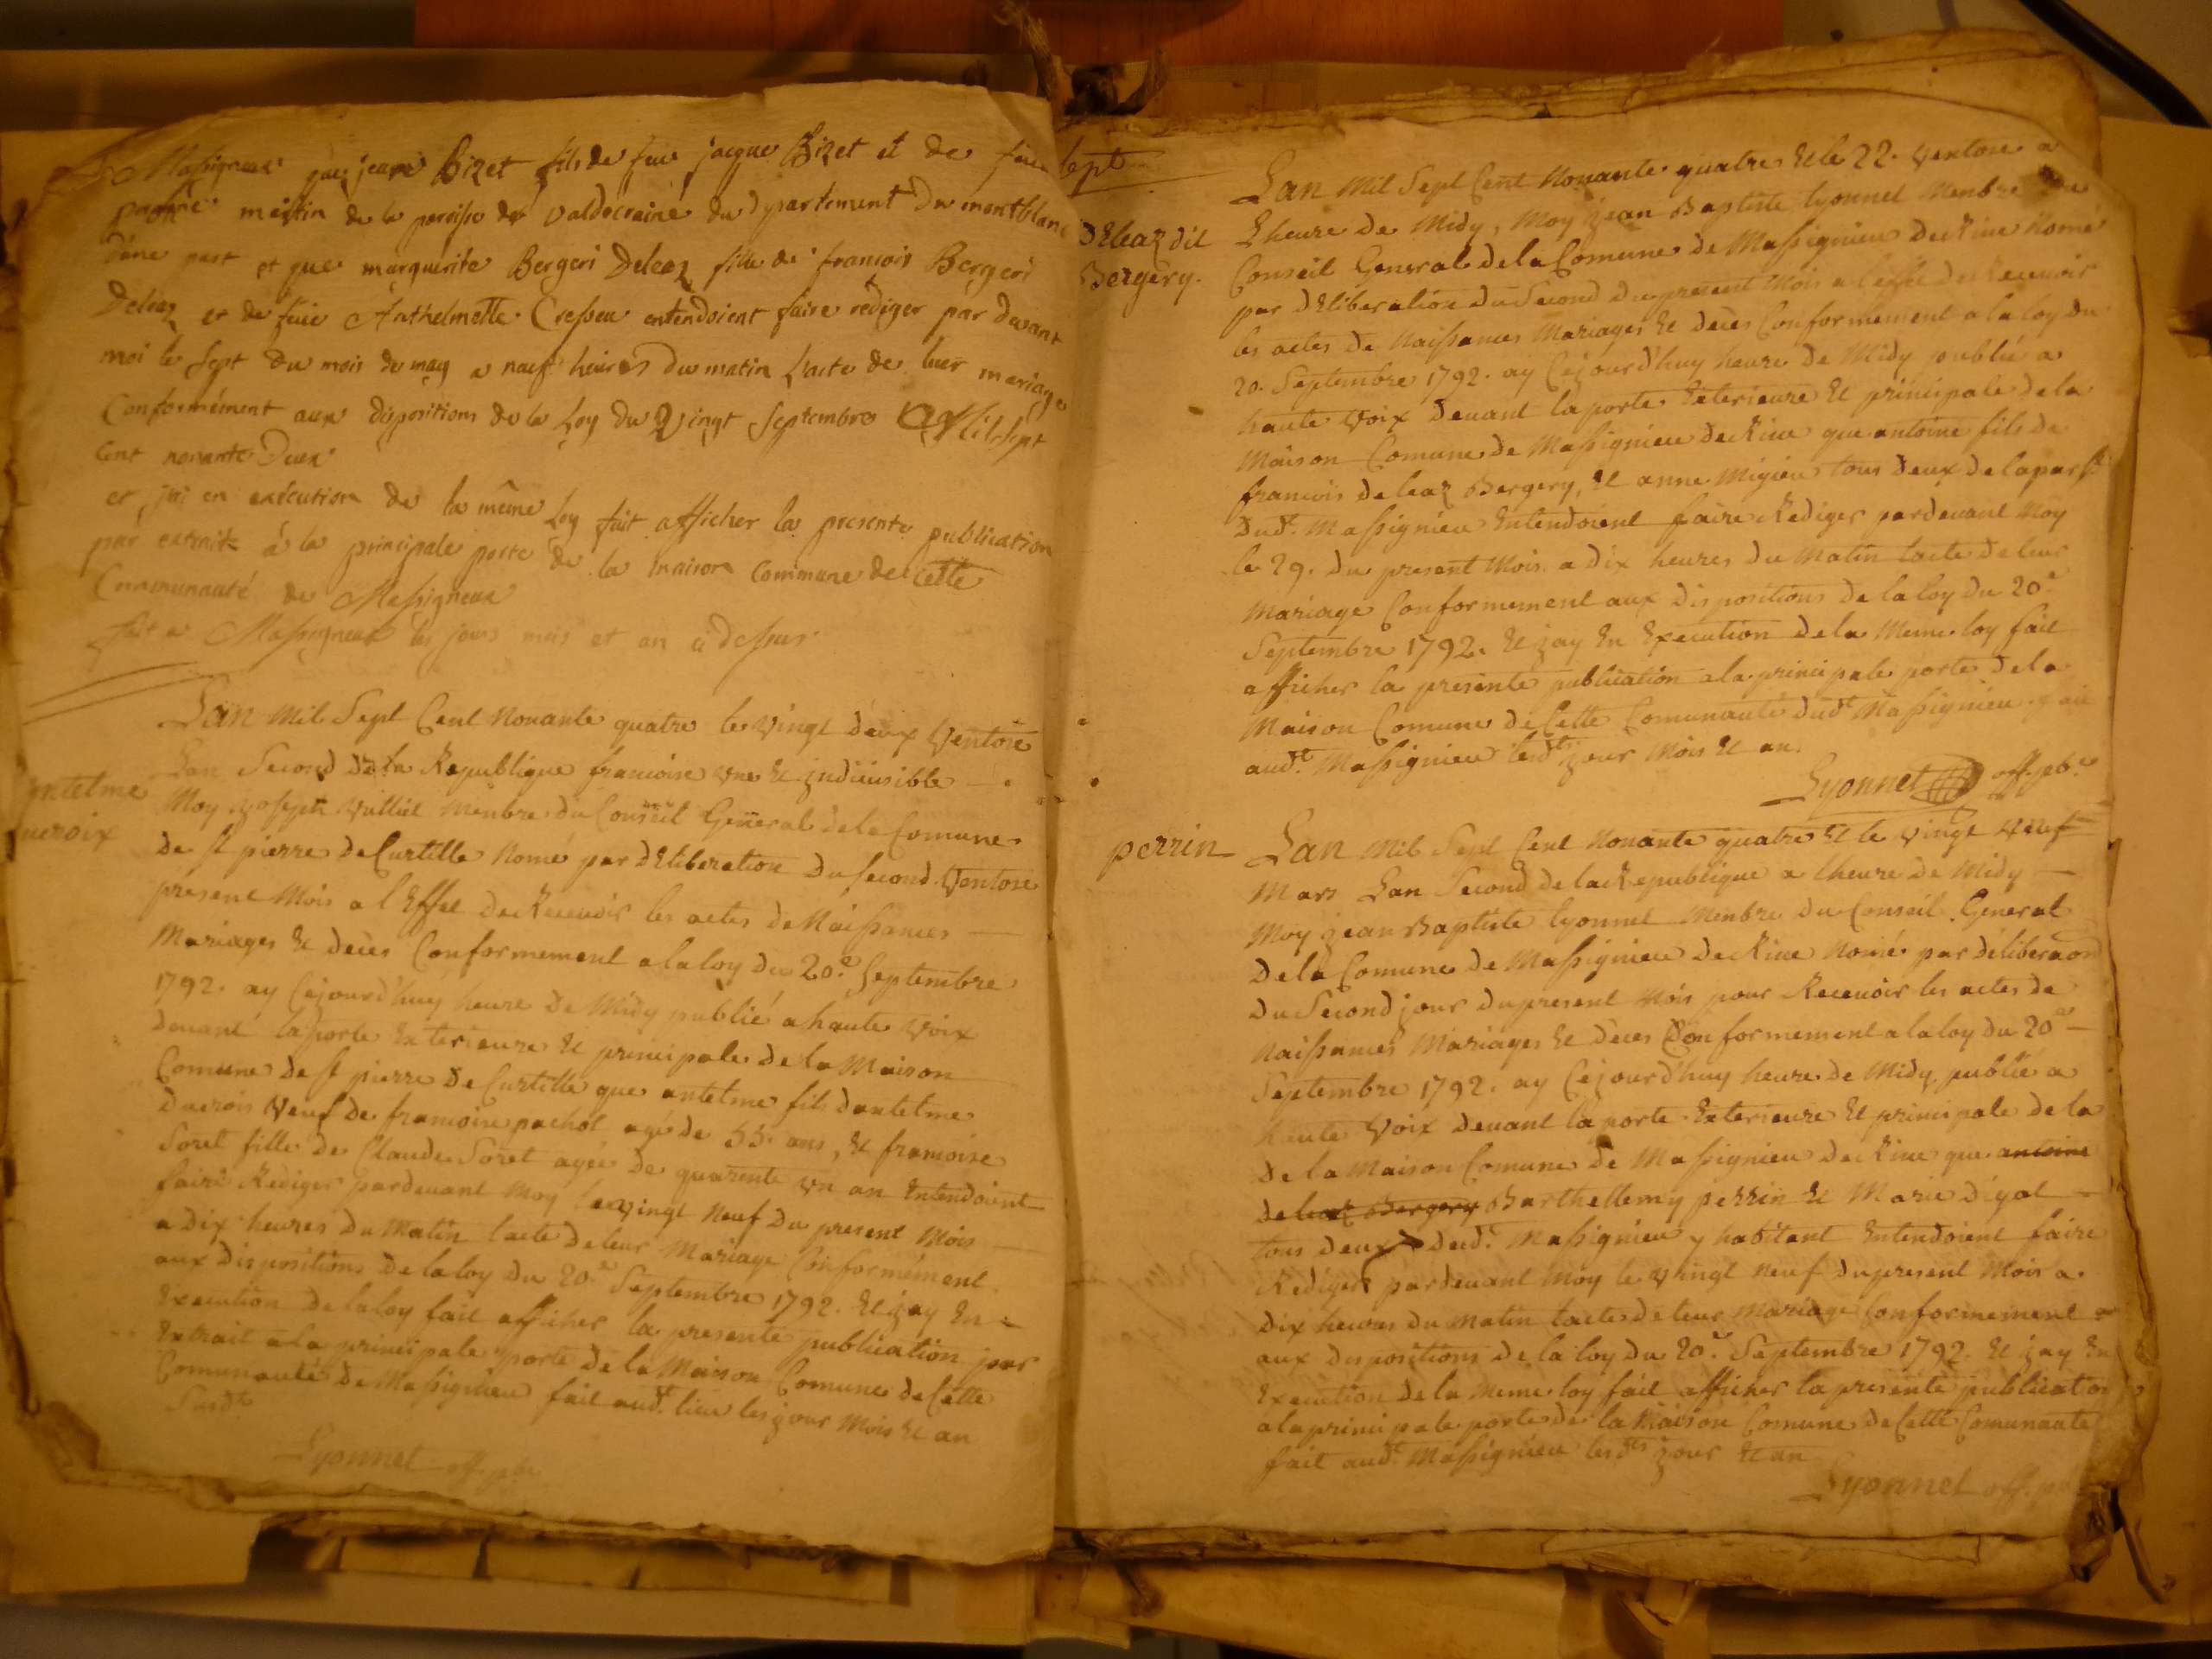 Massigneux que jean Bizet fils de feu jacque Bizet et de feue
mestin de la paroisse de valdecraine du Dpartement Du montblanc
d'une part et que marguerite Bergeri Deleaz fille de francois Bergeri
Deleaz et de feüe Anthelmette Cresseu entendoient faire rediger par devant
moi le sept du mois de may a neuf heures du matin l'acte de leur mariage
Conformément aux dispositions de la Loy du Vingt Septembre Mil sept
cent nonante Deux
et j'ai en exécution de la même Loy fait afficher la presente publication
par extrait á la principale porte de la maison Commune de cette
Communauté de Massigneux
fait a Massigneux les jours mois et an ci dessus
Lan Mil Sept Cent Nonante quatre le vingt deux Ventose
Lan Second de la Republique francoise une & jndiuisible
Moy joseph vulliel Menbre du Conseil General de la Comune
de st pierre de Curtille Nomé par dEliberation du second Ventose
present Mois a l'Effet de Recevoir les actes de Naissances
Mariages & deces Conformement a la loy du 20e Septembre
1792. ay Cejourd'huy heure de Midy publié a haute Voix
devant la porte Exterieure & principale de la Maison
Comune de st pierre de Curtille que antelme fils dantelme
ducrois Veuf de francoise pachot agé de 55 ans, & francoise
Soret fille de Claude Soret agée de quarente un an Entendoient
faire Rediger pardevant Moy le vingt Neuf du present Mois
a Dix heures du Matin lacte de leur Mariage Conformément
aux dispositions de la loy du 20e Septembre 1792. Et jay En
Execution de la loy fait afficher la presente publication par
Extrait a la principale porte de la Maison Comune de Cette
Comunauté de Massignieu fait aud.t lieu les jour Mois & an
Susd.ts
Lyonnet off. pbe
antelme
ducroix
sept
DEleaz dit
Bergery.
Lan Mil Sept Cent Nonante quatre & le 22. Ventose a
Lheure de Midy, Moy jean Baptiste lyonnet Menbre du
Conseil General de la Comune de Massignieu de Rive Nomé
par dEliberation du Second du present Mois a l'effet de Recevoir
les actes de Naissances Mariages & deces Conformement a la loy du
20. Septembre 1792. ay Cejourd'huy heure de Midy publié a
haute Voix devant la porte Exterieure & principale de la
Maison Comune de Massignieu de Rive que antoine fils de
francois deleaz Bergery, & anne Migieu tous deux de la parsse
dud.t Massignieu Entendoient faire Rediger pardevant Moy
le 29. du present Mois a dix heures du Matin lacte de leur
Mariage Conformement aux dispositions de la loy du 20e
Septembre 1792. Et jay En Execution de la Meme loy fait
afficher la presente publication a la principale porte de la
Maison Comune de Cette Comunauté dud.t Massignieu fait
aud.t Massignieu lesd.ts jour Mois & an.
Lyonnet off. pb.e
perrin
Lan Mil Sept Cent Nonante quatre & le Vingt Neuf
Mars Lan Second de la Republique a lheure de Midy
Moy jean Baptiste lyonnet Menbre du Conseil General
de la Comune de Massignieu de Rive Nomé par déliberaon
du Second jour du present Mois pour Recevoir les actes de
Naissances Mariages & deces Conformement a la loy du 20e
Septembre 1792. ay Cejourd'huy heure de Midy publié a
haute Voix devant la porte Exterieure & principale de la
de la Maison Comune de Massignieu de Rive que antoine
deleaz Bergery Barthellemy perrin & Marie digat
tous deux dud.t Massignieu y habitant Entendoient faire
Rediger pardevant Moy le Vingt Neuf du present Mois a
dix heures du Matin lacte de leur Mariage Conformement a
aux dispositions de la loy du 20e Septembre 1792. Et jay En
Execution de la Meme loy fait afficher la presente publicatio
a la principale porte de la Maison Comune de Cette Comunaute
fait aud.t Massignieu lesd.ts jour & an
Lyonnet off. pb